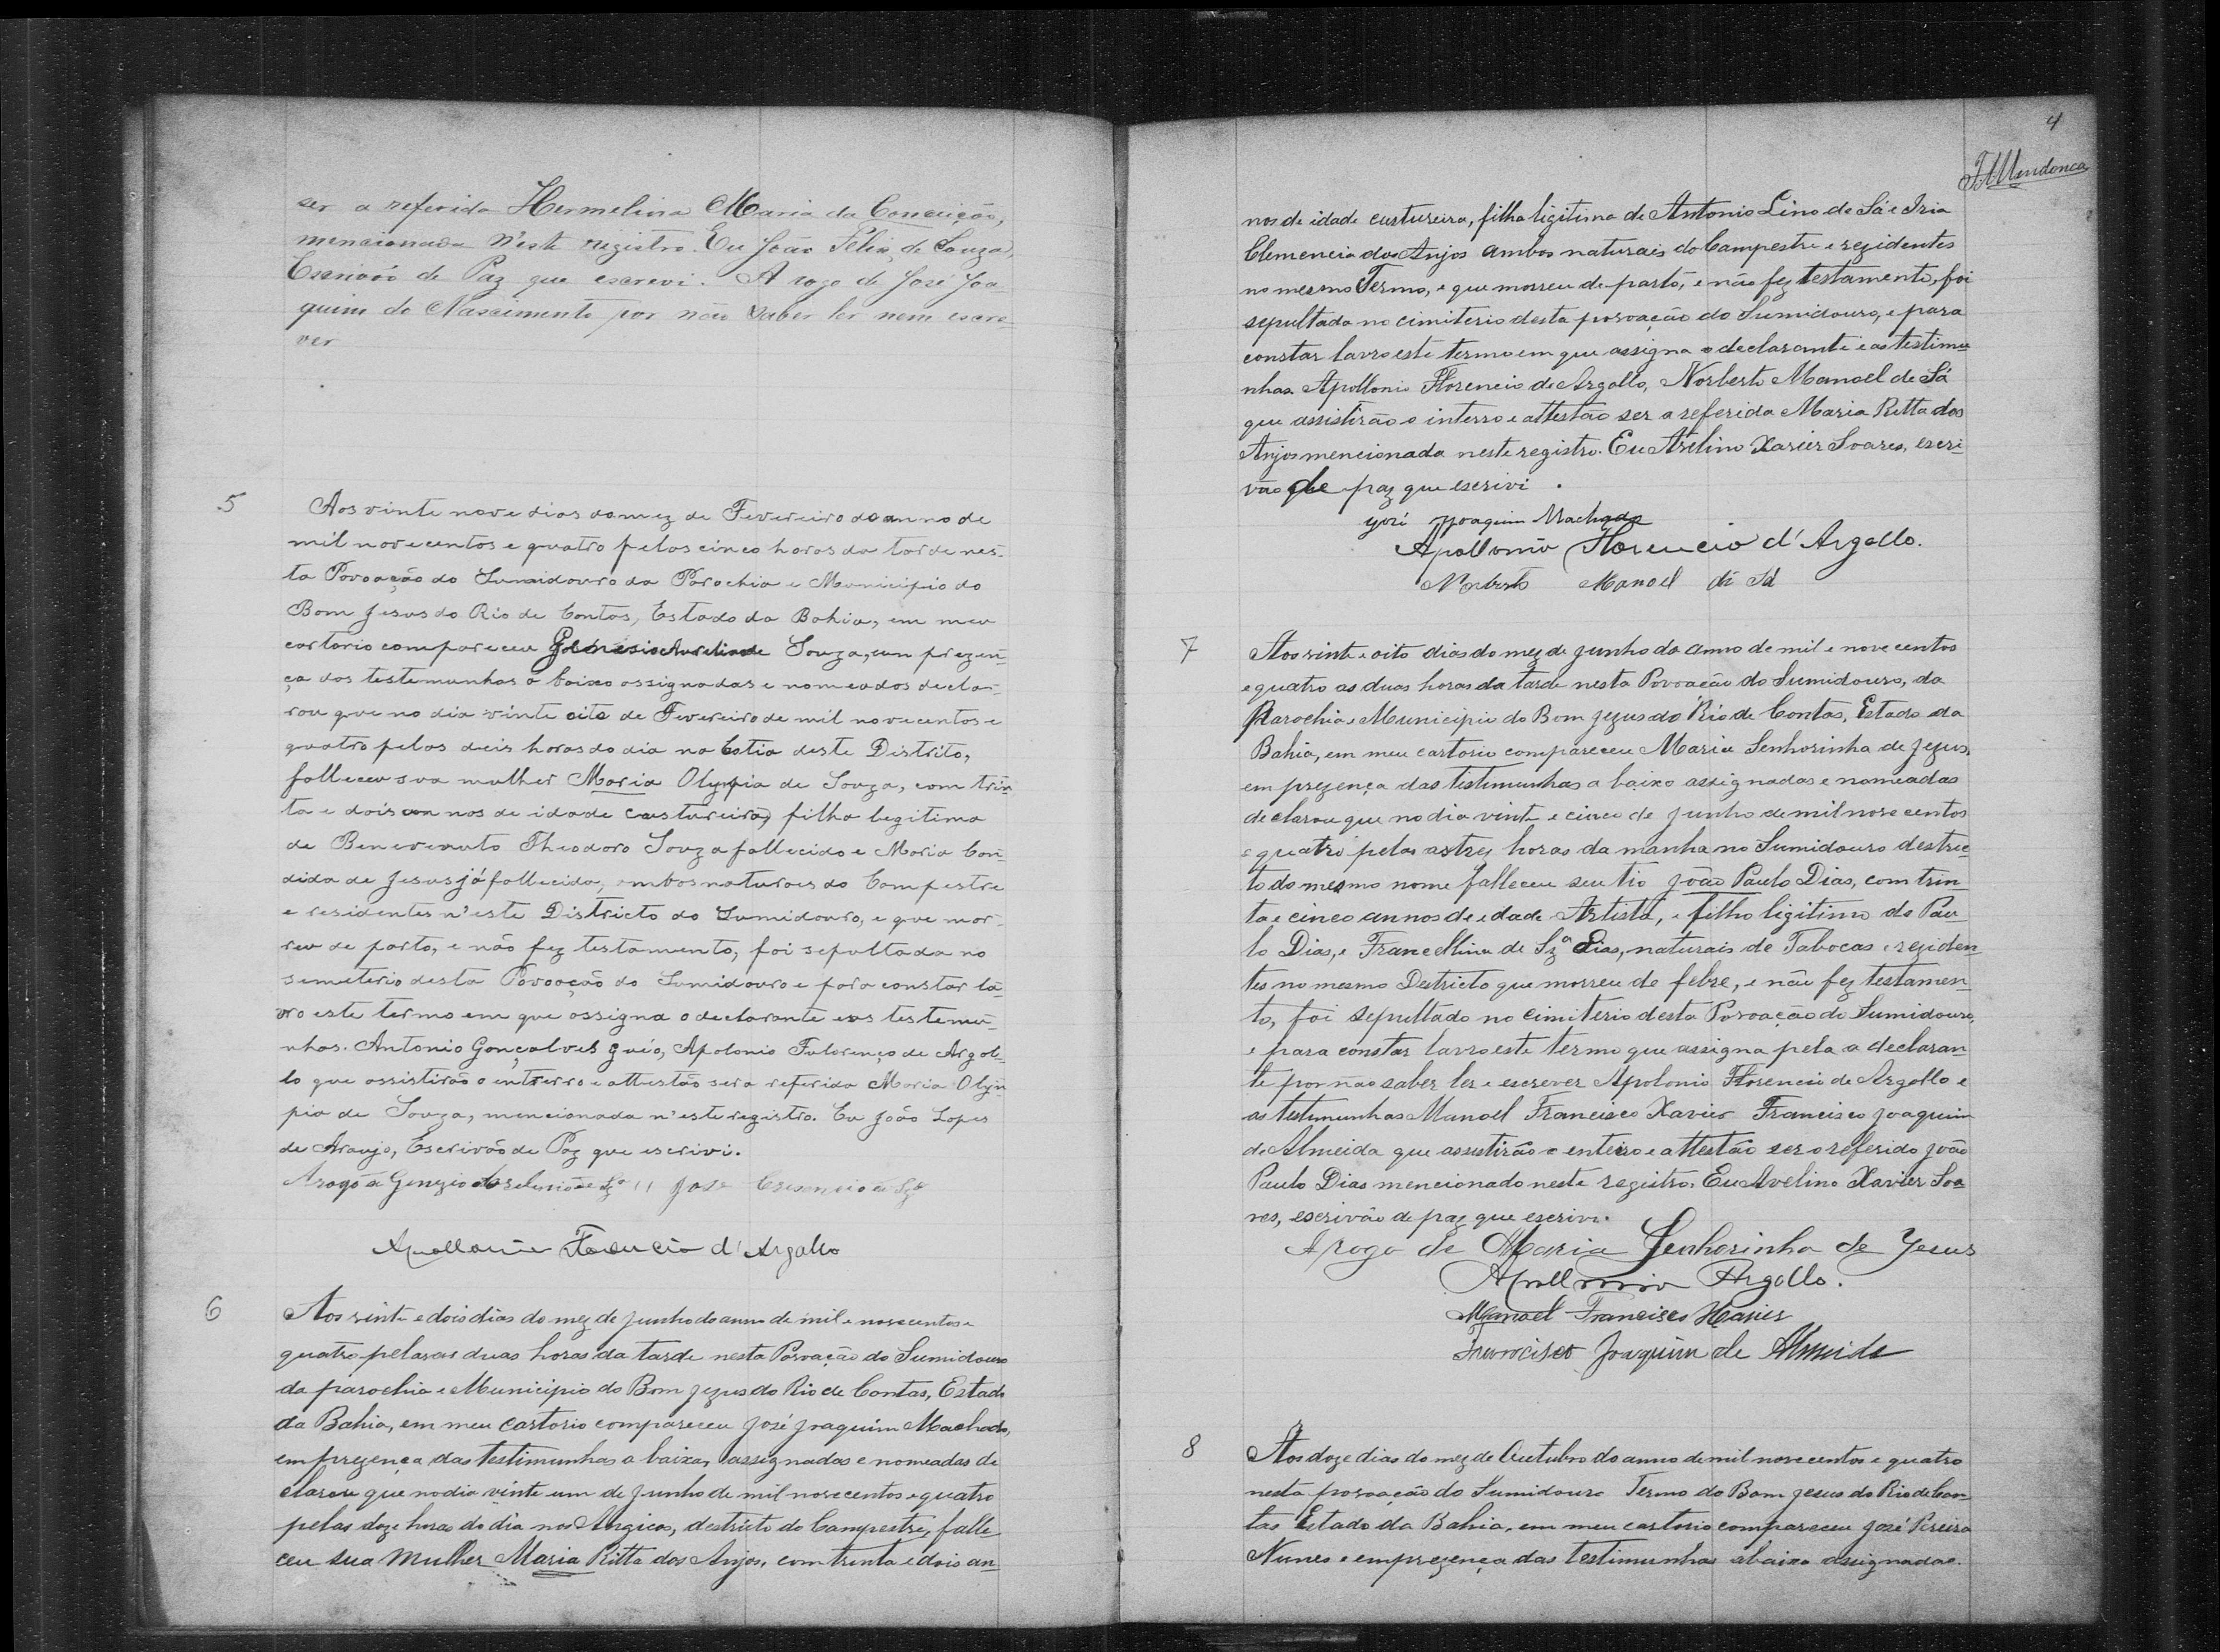 ser a referida Hermelina Maria da Conceição,
mencionada n'este registro. Eu João Felix de Souza,
Escrivão de Paz que escrevi. A rogo de José Joa-
quim do Nascimento por não saber ler nem escre-
ver
5
Aos vinte nove dias do mez de Fevereiro do anno de
mil novecentos e quatro pelas cinco horas da tarde nes-
ta Povoação do Sumidouro da Parochia e Municipio do
Bom Jesus do Rio de Contas, Estado da Bahia, em meu
cartorio compareceu Genesio Aurelio de Souza, em prezen-
ça dos testemunhas a baixo assignadas e nomeados decla-
rou que no dia vinte oito de Fevereiro de mil novecentos e
quatro pelas deis horas do dia na Estia deste Distrito,
falleceu sua mulher Maria Olympia de Souza, com trin-
ta e dois annos de idade custureira, filha legitima
de Benevenuto Theodoro Souza fallecido e Maria Can-
dida de Jesus já fallecida, ambos naturaes do Campestre
e residentes n'este Districto do Sumidouro, e que mor-
reu de parto, e não fez testamento, foi sepultada no
semeterio desta Povoação do Sumidouro e para constar la-
vro este termo em que assigna o declarante e as testemu-
nhas. Antonio Gonçalves Apolonio Fulorenço de Argol-
lo que assistirão o entrerro e attestão ser a referida Maria Olyn-
pia de Souza, mencionada n'este registro. Eu João Lopes
de Araujo, Escrivão de Paz que escrivi.
Arogo a Genezio José
Apollonio Florencio d'Argollo
6
Aos vinte e dois dias do mez de Junho do anno de mil e novecentos e
quatro pelas as duas horas da tarde nesta Povoação do Sumidouro
da parochia e Municipio do Bom Jezus do Rio de Contas, Estado
da Bahia, em meu cartorio compareceu José Joaquim Machado,
em prezença das testimunhas a baixo assignadas e nomeadas de
clarou que no dia vinte um de Junho de mil novecentos e quatro
pelas doze horas do dia nos Angicos, destricto do Campestre, falle
ceu sua mulher Maria Ritta dos Anjos, com trenta e dois an-
4
F A Mendonca
nos de idade custureira, filha ligitima de Antonio Lino de Sá e Iria
Clemencia dos Anjos ambos naturais do Campestre e rezidentes
no mesmo Termo, e que morreu de parto, e não fez testamento, foi
sepultada no cimiterio desta povoação do Sumidouro, e para
constar lavro este termo em que assigna o declarante e as testimu
nhas. Apollonio Florencio de Argollo, Norberto Manoel de Sá
que assistirão o interro e attestão ser a referida Maria Ritta dos
Anjos mencionada neste registro. Eu Avelino Xavier Soares, escri-
vão de paz que escrivi.
José Joaquim Machado
Apollonio Florencio d'Argollo.
Norberto Manoel di Sá
7
Aos vinte e oito dias do mez de Junho do anno de mil e novecentos
e quatro as duas horas da tarde nesta Povoação do Sumidouro, da
Parochia e Municipio do Bom Jezus do Rio de Contas, Estado da
Bahia, em meu cartorio compareceu Maria Senhorinha de Jezus,
em prezença das testimunhas a baixo assignadas e nomeadas
declarou que no dia vinte e cinco de Junho de mil novecentos
e quatro pelas as trez horas da manha no Sumidouro destric-
to do mesmo nome falleceu seu tio João Paulo Dias, com trin
ta e cinco annos de edade Artista, e filho ligitimo de Pau
lo Dias, e Francellina de Sza Dias, naturais de Tabocas e reziden_
tes no mesmo Destricto que morreu de febre, e não fez testamen_
to, foi sepultado no cimiterio desta Povoação do Sumidouro,
e para constar lavro este termo que assigna pela a declaran
te por não saber ler e escrever Apolonio Florencio de Argollo e
as testimunhas Manoel Francisco Xavier Francisco Joaquim
de Almeida que assistirão o enterro e attestão ser o referido João
Paulo Dias mencionado neste registro. Eu Avelino Xavier Soa
res, escrivão de paz que escrivi.
A rogo de Maria Senhorinha de Jesus
Apollonio Argollo.
Manoel Francisco Xavier
Francisco Joaquim de Almeida
8
Aos doze dias do mez de Outubro do anno de mil novecentos e quatro
nesta povoação do Sumidouro Termo do Bom Jesus do Rio de Con-
tas Estado da Bahia, em meu cartorio compareceu José Pereira
Nunes e em prezença das testimunhas abaixo assignadas.